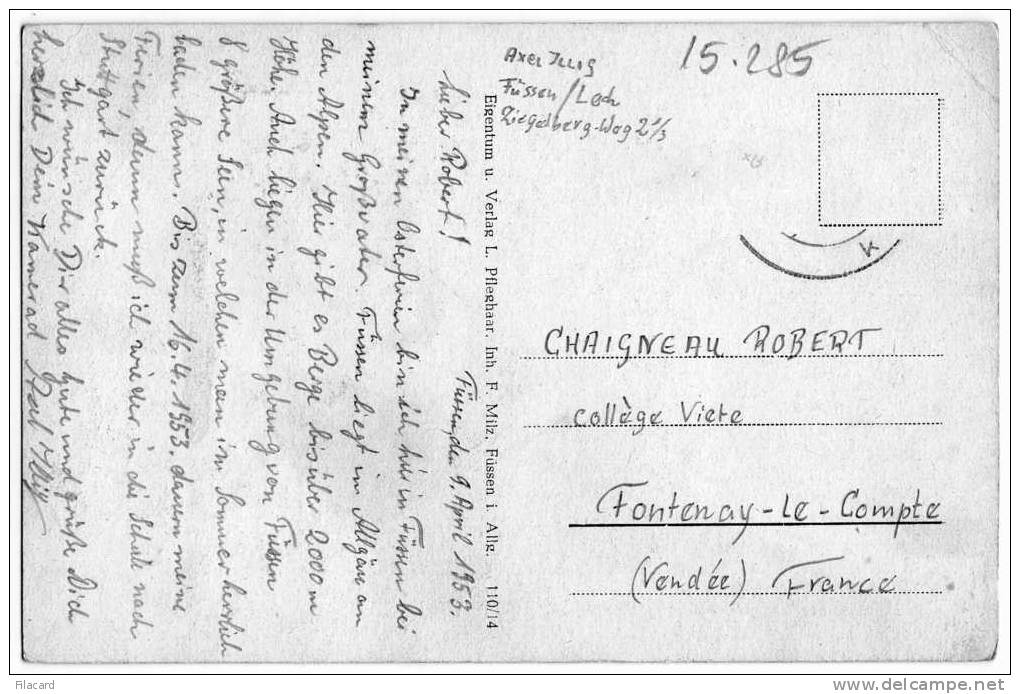 15.285
Axel Illig
Füssen/Lech
Ziegelberg-Weg 2 1/3
Füssen, den 9. April 1953.
Lieber Robert!
In meinen Osterferien bin ich hier in Füssen bei
meinem Großvater. Füssen liegt im Allgäu an
den Alpen. Hier gibt es Berge bis über 2000 m
Höhe. Auch liegen in der Umgebung von Füssen
8 größere Seen, in welchen man im Sommer herrlich
baden kann. Bis zum 16.4.1953. dauern meine
Ferien, dann muß ich wieder in die Schule nach
Stuttgart zurück.
Ich wünsche Dir alles Gute und grüße Dich
herzlich Dein Kamerad Axel Illig
Eigentum u. Verlag L. Pfleghaar, Inh. F. Milz, Füssen i. Allg. 110/14
K
CHAIGNEAU ROBERT
Collège Viete
Fontenay-Le-Compte
(Vendée) France
Filacard
www.delcampe.net